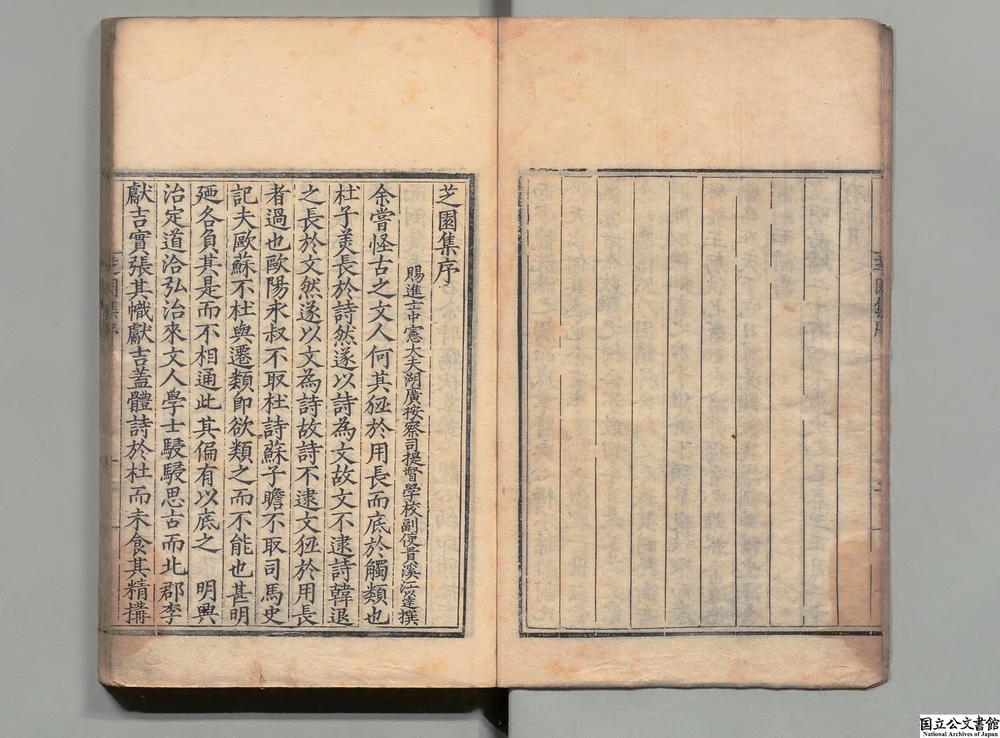 芝園集序
賜進士中憲大夫湖廣按察司提督學校副使貴溪江以達撰
余嘗怪古之文人何其狃於用長而底於觸類也
杜子美長於詩然遂以詩為文故文不逮詩韓退
之長於文然遂以文為詩故詩不逮文狃於用長
者過也歐陽永叔不取杜詩蘇子瞻不取司馬史
記夫歐蘇不杜與遷類即欲類之而不能也甚明
廼各負其是而不相通此其偏有以底之　明興
治定道洽弘治來文人學士駸駸思古而北郡李
獻吉實張其幟獻吉蓋體詩於杜而未食其精搆
芝園集序
国立公文書館
National Archives of Japan